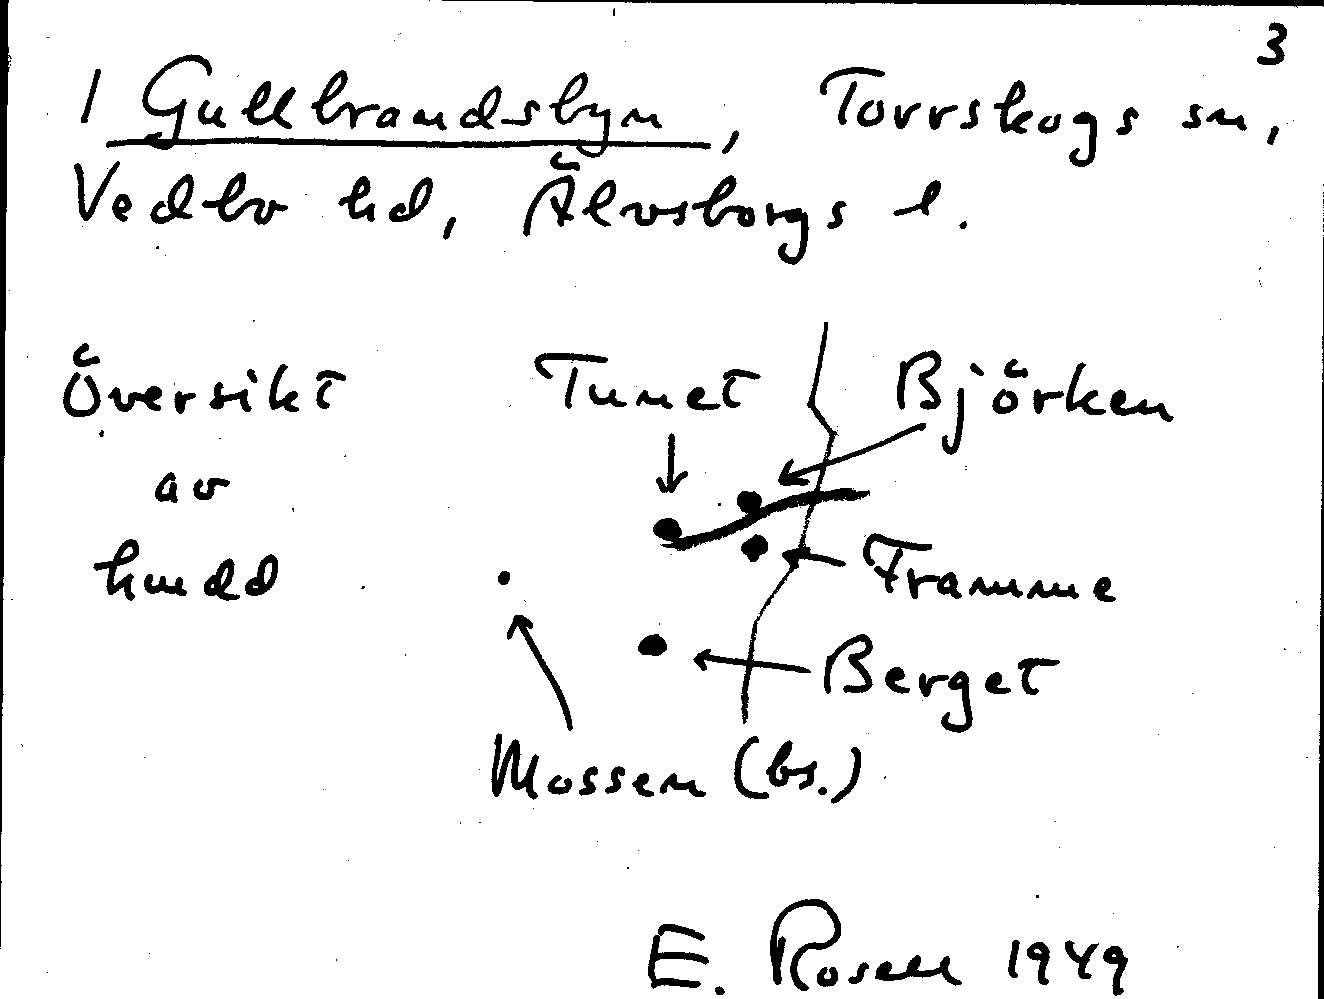 3
1 Gullbrandsbyn, Torrskogs sn,
Vedbo hd, Älvsborgs l.
Översikt
av
hmdd
Tunet
Björken
Framme
Berget
Mossen (bs.)
E. Rosell 1949